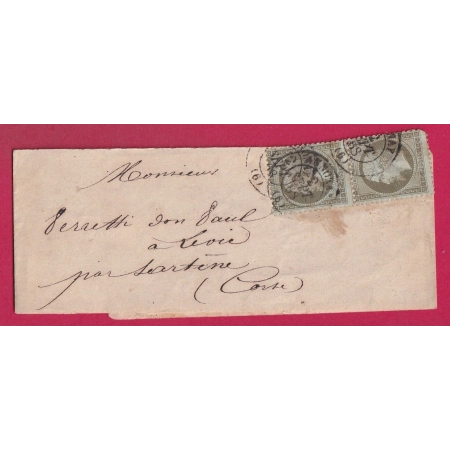 Monsieur
Perretti don Paul
à Levie
par Sartène
(Corse)
(6)
(6)